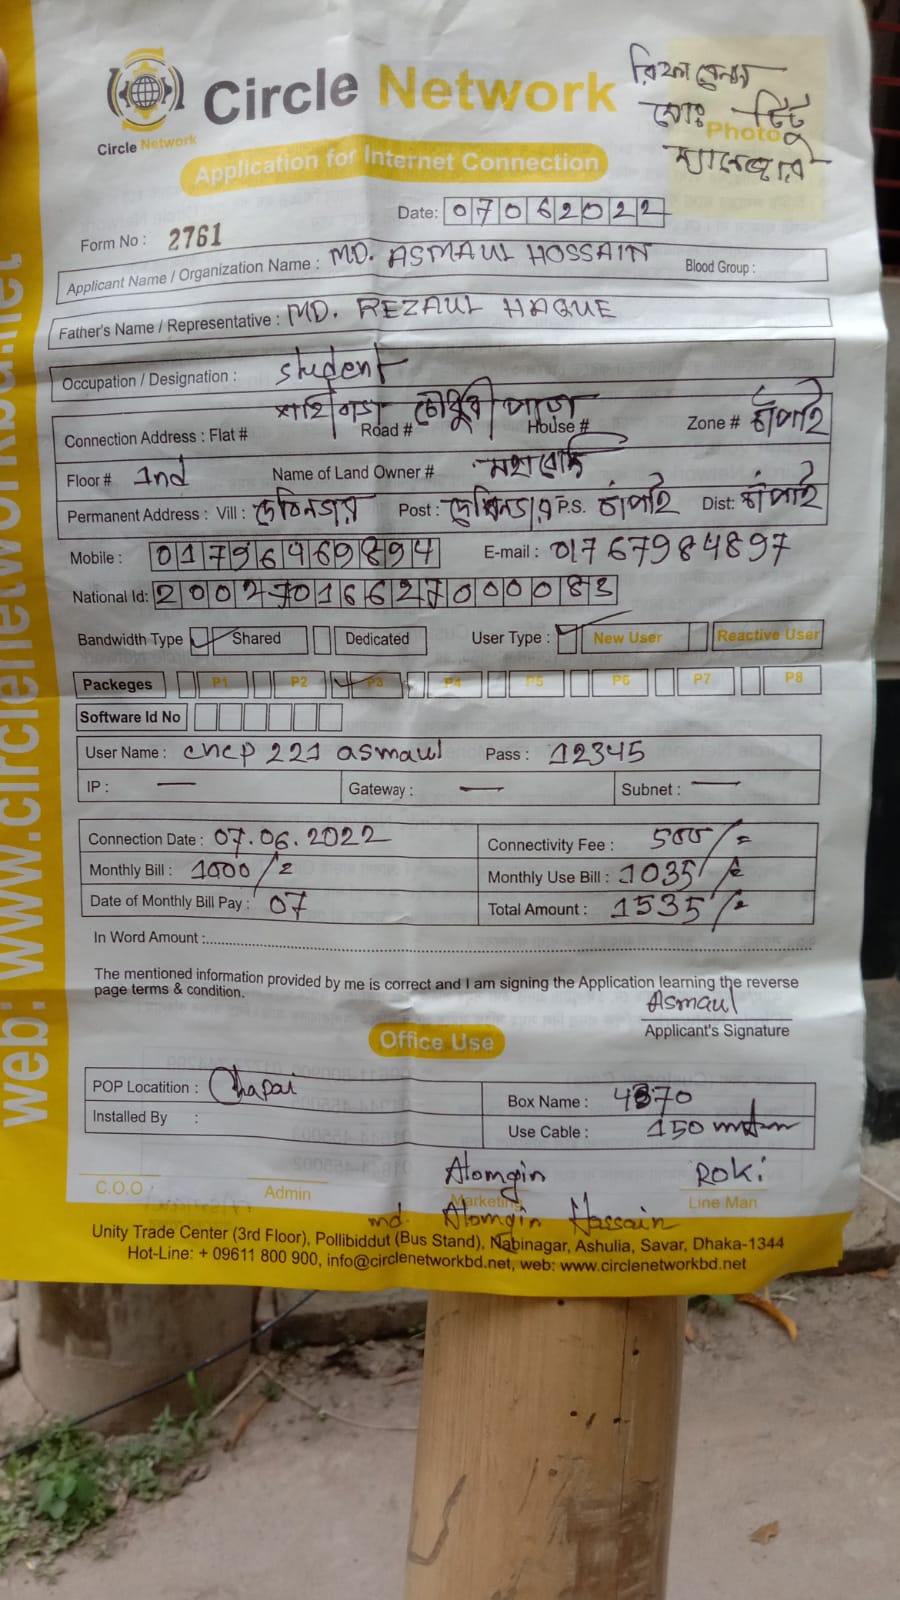 Circle Network
Circle Network
Application for Internet Connection
Photo
মোঃ টিটু
Date: 07062022
Form No : 2761
Applicant Name / Organization Name : MD. ASMAUL HOSSAIN Blood Group :
Father's Name / Representative : MD. REZAUL HAQUE
Occupation / Designation : Student
Connection Address : Flat # Road # চৌধুরী পাড়া House # Zone # চাঁপাই
Floor # 1nd Name of Land Owner #
Permanent Address : Vill : Post : P.S. চাঁপাই Dist: চাঁপাই
Mobile : 01796969894 E-mail : 01767984897
National Id: 20027016627000083
Bandwidth Type Shared Dedicated User Type : New User Reactive User
Packeges P1 P2 P3 P4 P5 P6 P7 P8
Software Id No
User Name : chcp 221 asmaul Pass : 12345
IP : — Gateway : — Subnet : —
Connection Date : 07.06.2022 Connectivity Fee : 500/=
Monthly Bill : 1000/= Monthly Use Bill : 1035/=
Date of Monthly Bill Pay : 07 Total Amount : 1535/=
In Word Amount :
The mentioned information provided by me is correct and I am signing the Application learning the reverse
page terms & condition.
Asmaul
Applicant's Signature
Office Use
POP Locatition : Chapai Box Name : 4370
Installed By : Use Cable : 150
Alomgin Roki
C.O.O Admin Marketing Line Man
md. Alomgin Hassain
Unity Trade Center (3rd Floor), Pollibiddut (Bus Stand), Nabinagar, Ashulia, Savar, Dhaka-1344
Hot-Line: + 09611 800 900, info@circlenetworkbd.net, web: www.circlenetworkbd.net
web: www.circlenetworkbd.net